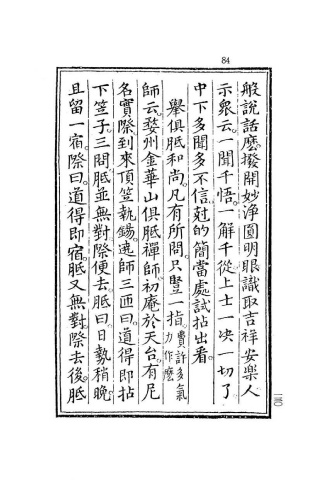 84
般說話麼撥開妙淨圓明眼識取吉祥安樂人
示衆云。一聞千悟。一解千從。上士一决一切了
中下多聞多不信。尅的簡當處試拈出看。
舉俱胝和尚。凡有所問。只豎一指。費許多氣力作麼
師云。婺州金華山俱胝禪師。初庵於天台。有尼
名實際。到來頂笠執錫。遶師三匝曰。道得即拈
下笠子。三問胝並無對。際便去。胝曰。日勢稍晚。
且留一宿。際曰。道得即宿。胝又無對。際去後。胝
一三〇